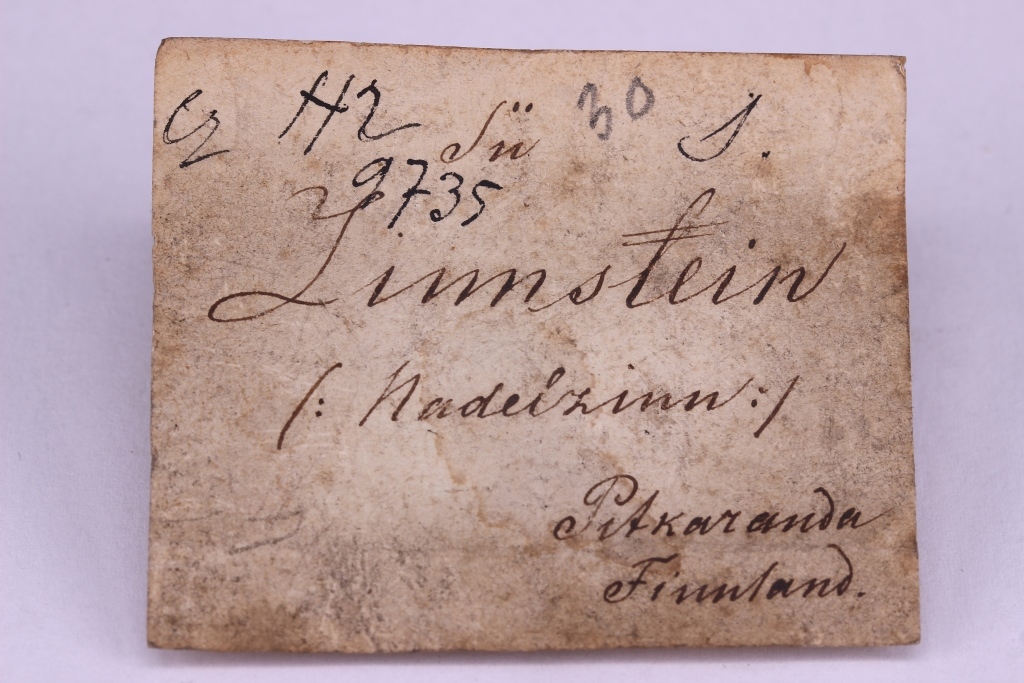 H2 Sü 30 S.
9735
Zinnstein
(: Nadelzinn :)
Pitkaranda
Finnland.